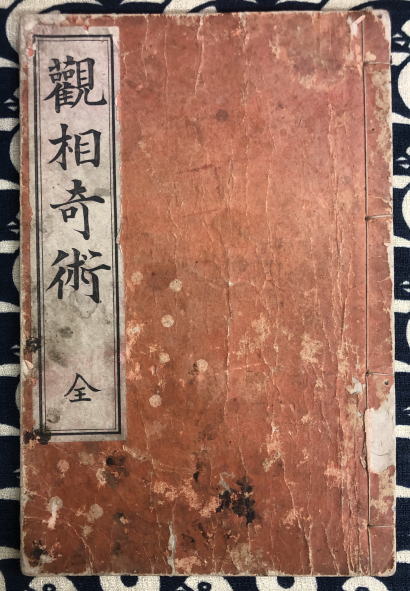 觀相奇術
全